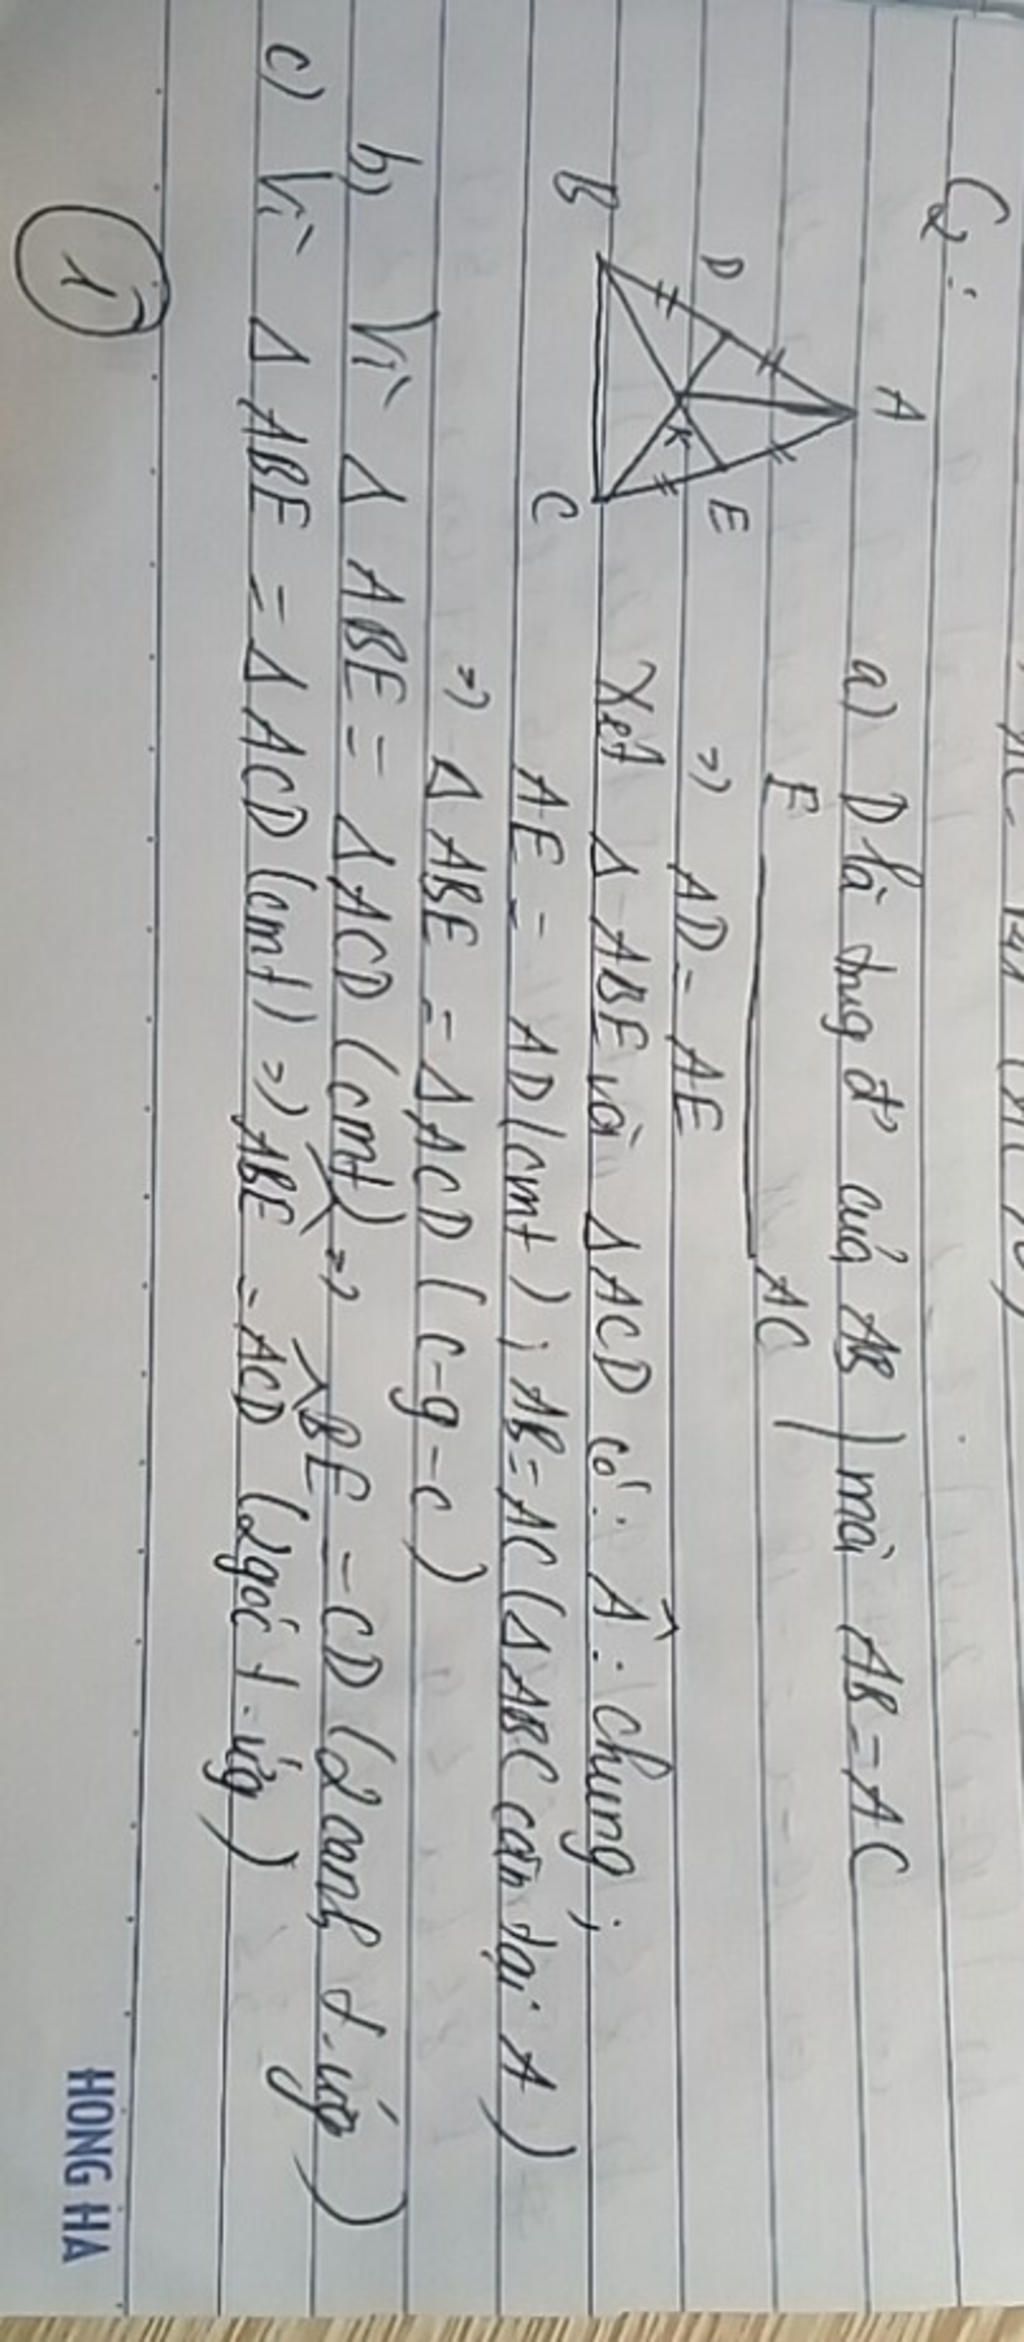 C2:
A
D
E
K
B
C
a) D là trug đ' của AB } mà AB = AC
E ——— AC
=> AD = AE
Xét Δ ABE và Δ ACD có: Â: chung;
AE = AD (cmt); AB = AC (Δ ABC cân tại A)
=> Δ ABE = Δ ACD (c-g-c)
b) Vì Δ ABE = Δ ACD (cmt) => BE = CD (2 cạnh t.ứg)
c) Vì Δ ABE = Δ ACD (cmt) => ABE = ACD (2 góc t.ứg)
1
HONG HA